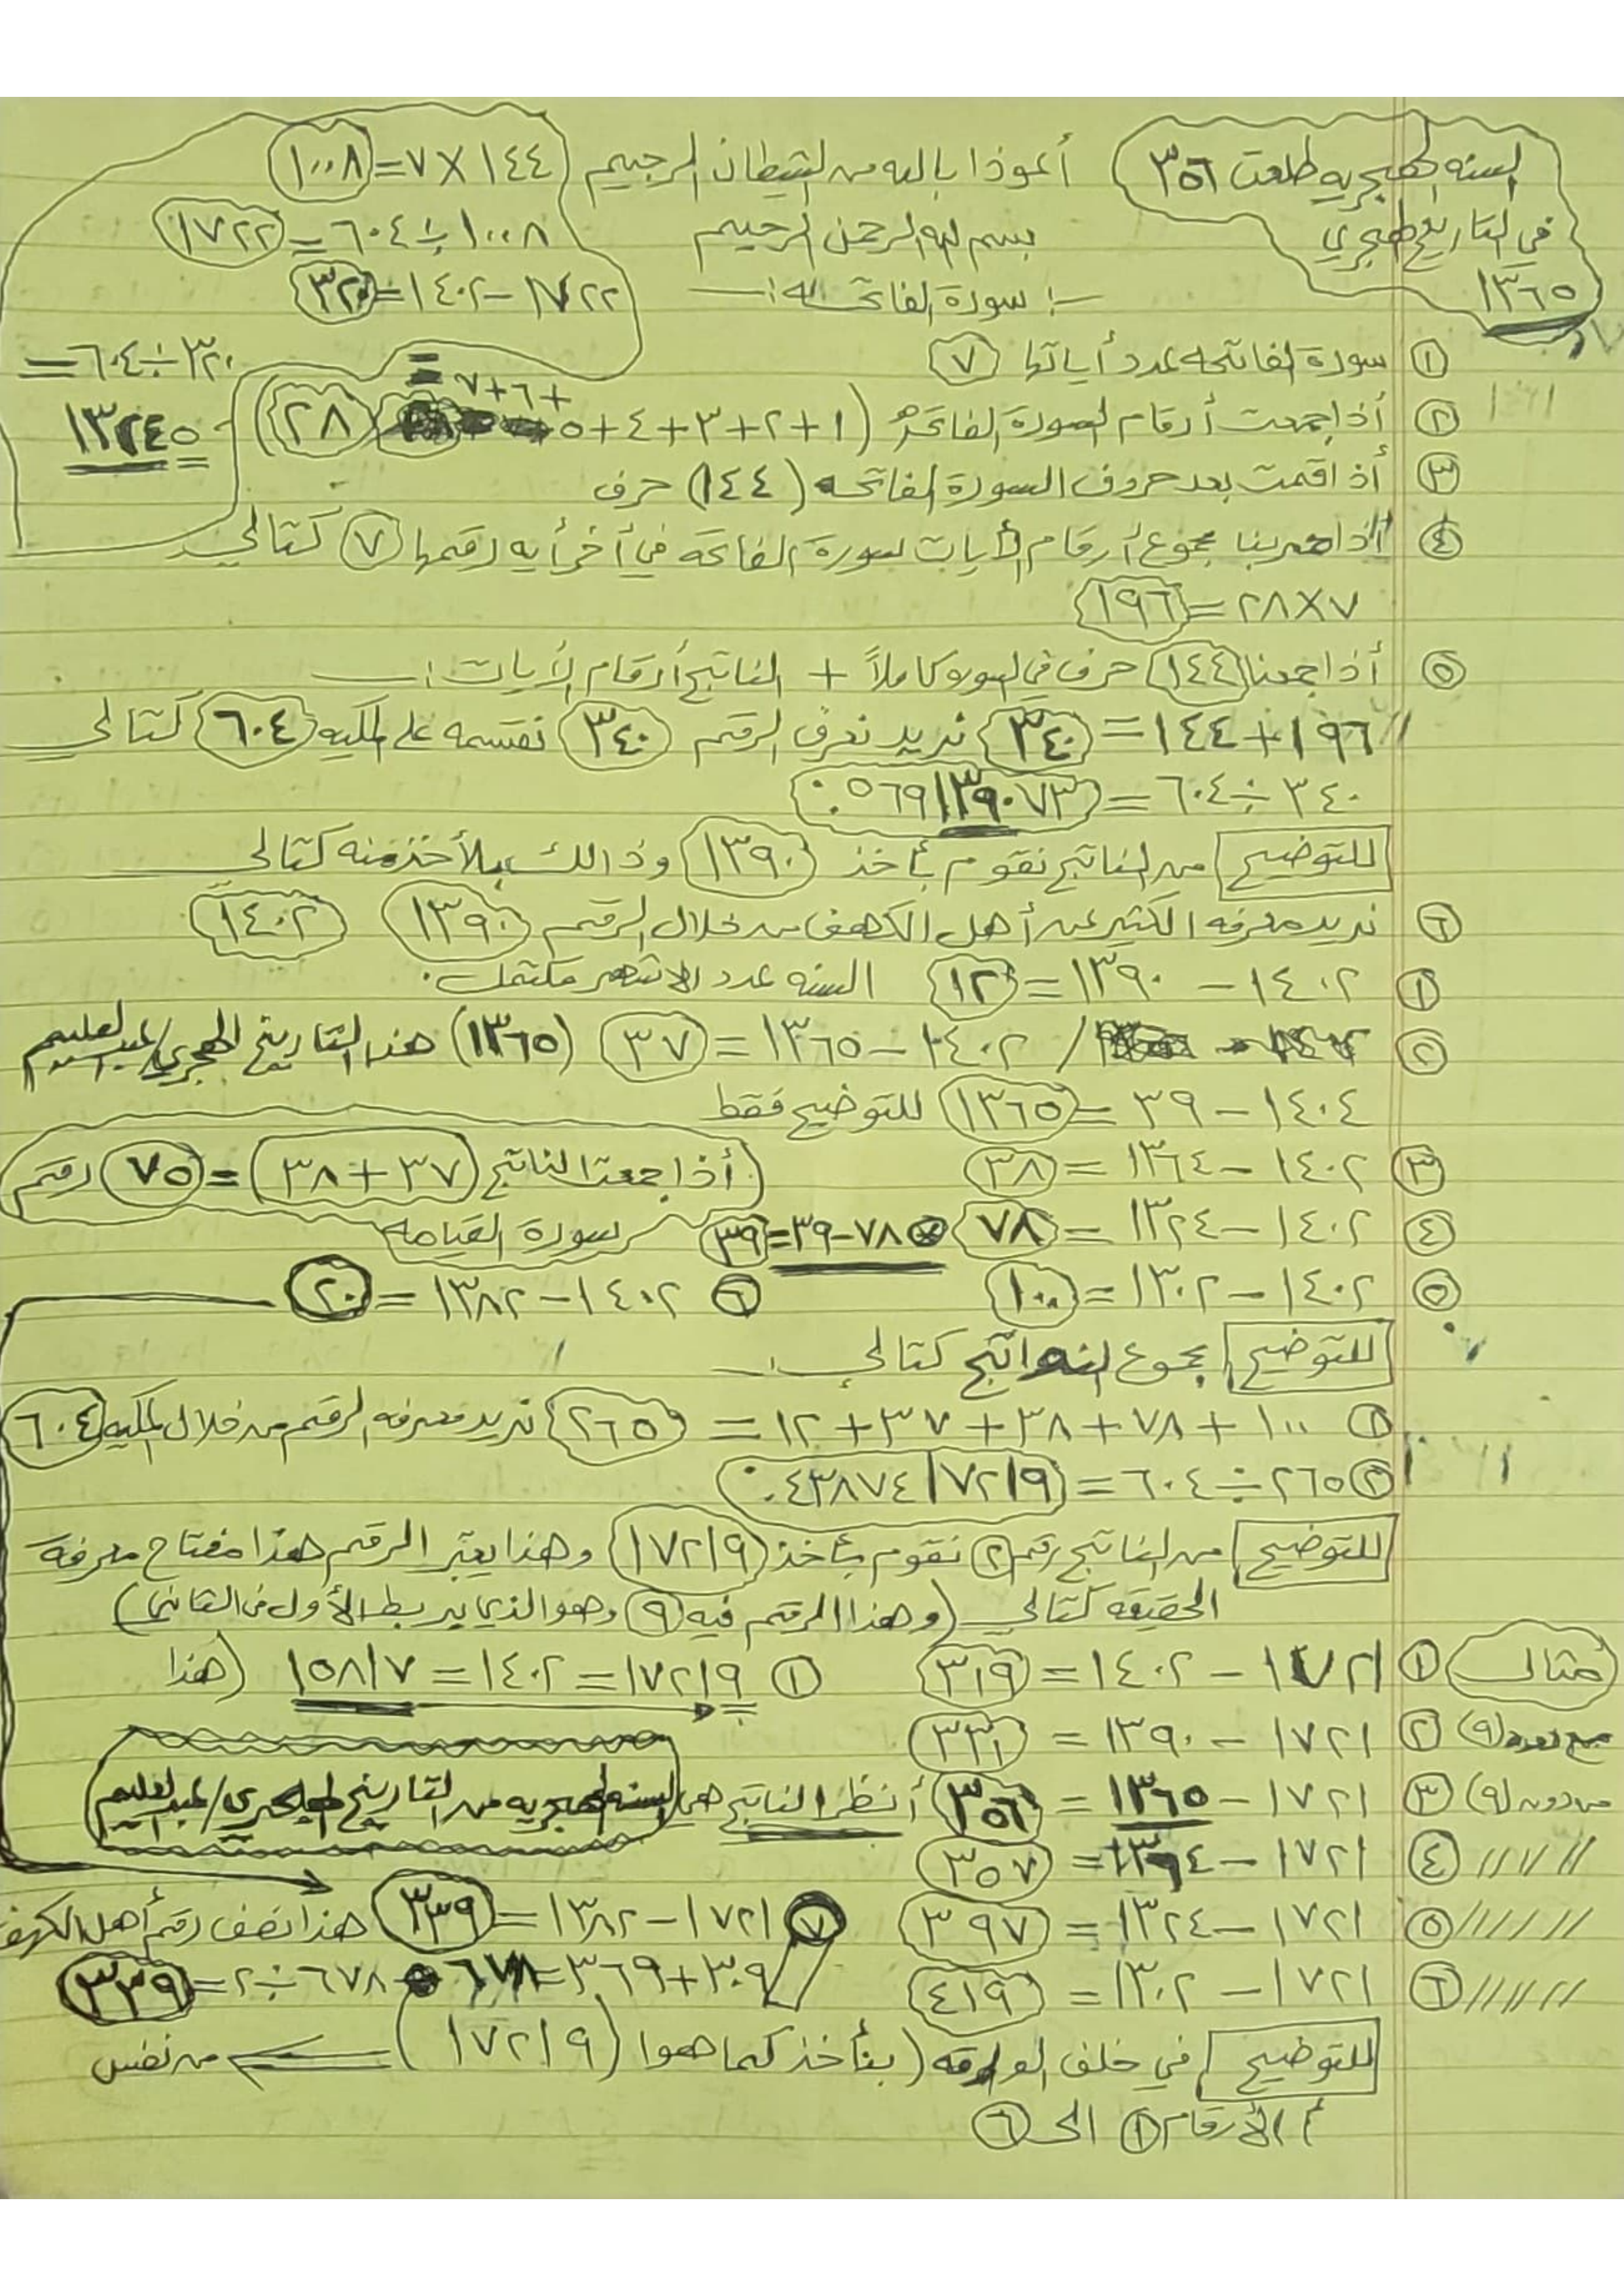 السنه الهجريه طلعت ٣٥٦
في التاريخ الهجري
١٣٦٥
أعوذا بالله من الشيطان الرجيم
بسم الله الرحمن الرحيم
:ـ سورة الفاتحــه :ـ
١٤٤ × ٧ = ١٠٠٨
١٠٠٨ ÷ ٦٠٤ = ١٧٢٢
١٧٢٢ – ١٤٠٢ = ٣٢٠
٣٢٠ ÷ ٦٠٤ =
١٣٢٤٥
① سورة الفاتحه عدد أياتها ٧
② أذا جمعت أرقام السورة الفاتحه (١+٢+٣+٤+٥ +٦+٧ = ٢٨)
③ أذا قمت بعد حروف السورة الفاتحه (١٤٤) حرف
④ أذا ضربنا مجموع أرقام الأيات لسورة الفاتحة في أخر أيه رقمها ٧ كتالي
٢٨×٧ = ١٩٦
⑤ أذا جمعنا ١٤٤ حرف في السوره كاملاً + الناتج أرقام الأيات :ـ
١٩٦ + ١٤٤ = ٣٤٠ نريد نعرف الرقم ٣٤٠ نقسمه على المكيه ٦٠٤ كتالي
٣٤٠ ÷ ٦٠٤ = ٠.٥٦٩١٣٩٠٧٣
للتوضيح من الناتج نقوم بأخذ ١٣٩٠ وذالك بلأخذ منه كتالي
⑥ نريد معرفه الكثير عن أهل الكهف من خلال الرقم ١٣٩٠ ١٤٠٢
① ١٤٠٢ – ١٣٩٠ = ١٢ السنه عدد الاشهر مكتمله.
② / ١٤٠٢ – ١٣٦٥ = ٣٧ (١٣٦٥) هذا التاريخ الهجري/
١٤٠٤ – ٣٩ = ١٣٦٥ للتوضيح فقط
③ ١٤٠٢ – ١٣٦٤ = ٣٨
أذا جمعت الناتج (٣٧+٣٨) = ٧٥ رقم
سورة القيامه
④ ١٤٠٢ – ١٣٢٤ = ٧٨ ⊗ ٧٨–٣٩=٣٩
⑤ ١٤٠٢ – ١٣٠٢ = ١٠٠
⑥ ١٤٠٢ – ١٣٨٢ = ٢٠
للتوضيح مجموع النواتج كتالي :ـ
① ١٠٠ + ٧٨ + ٣٨ + ٣٧ + ١٢ = ٢٦٥ نريد معرفه الرقم من خلال المكيه ٦٠٤
② ٢٦٥ ÷ ٦٠٤ = ٠.٤٣٨٧٤١٧٢١٩
للتوضيح من الناتج رقم ② نقوم بأخذ (١٧٢١٩) وهذا يعتبر الرقم هذا مفتاح معرفة
الحقيقه كتالي (وهذا الرقم فيه ٩ وهو الذي يربط الأول في الثاني)
مثال ① ١٧٢١ – ١٤٠٢ = ٣١٩
① ١٧٢١٩ = ١٤٠٢ = ١٥٨١٧ (هذا
② ١٧٢١ – ١٣٩٠ = ٣٣١
من دون (٩) ③ ١٧٢١ – ١٣٦٥ = ٣٥٦ أنظر الناتج هي السنه الهجريه من التاريخ الهجري/
④ ١٧٢١ – ١٣٦٤ = ٣٥٧
⑤ ١٧٢١ – ١٣٢٤ = ٣٩٧
⑦ ١٧٢١ – ١٣٨٢ = ٣٣٩ هذا نصف رقم أهل الكهف
⑥ ١٧٢١ – ١٣٠٢ = ٤١٩
٣٠٩ + ٣٦٩ = ٦٧٨ ٦٧٨ ÷ ٢ = ٣٣٩
للتوضيح في خلف الورقه (بنأخذ كما هوا (١٧٢١٩) من نفس
الأرقام ① الى ⑥